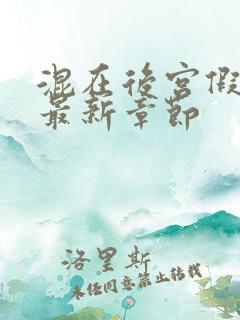 混在後宮假
最新章節
洛里斯
未經同意禁止轉載